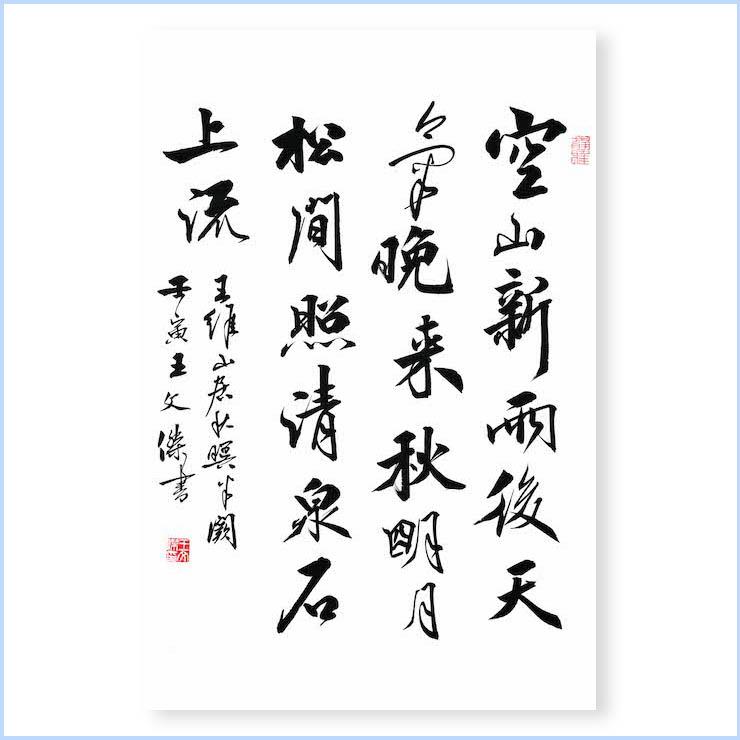 空山新雨後天
氣晚来秋明月
松間照清泉石
上流
王維山居秋暝半闕
壬寅王文傑書